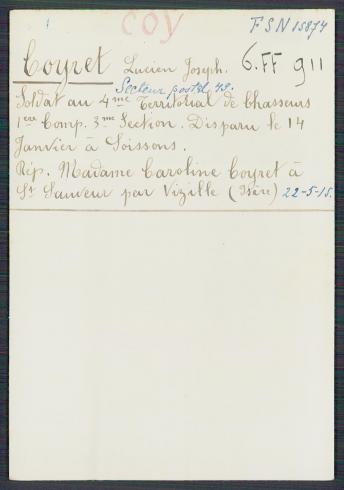 COY
FSN 15874
Coyret Lucien Joseph. 6.FF 911
Secteur postal 48.
Soldat au 4me Territorial de Chasseurs
1ère Comp. 3me Section. Disparu le 14
Janvier à Soissons.
Rép. Madame Caroline Coyret à
St Sauveur par Vizille (Isère) 22-5-15.